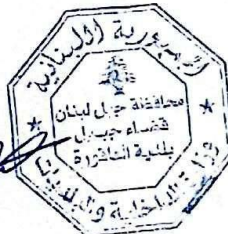 الجمهورية اللبنانية
محافظة جبل لبنان
قضاء جبيل
بلدية
وزارة الداخلية والبلديات